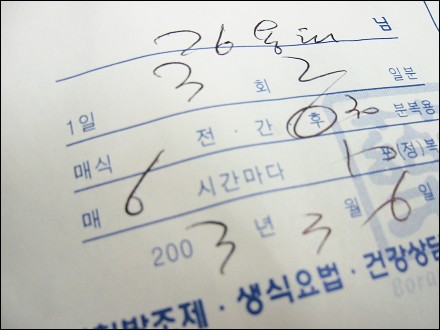 님
1일 3 회 2 일분
매식 전 · 간 · 후 30 분복용
매 6 시간마다 포(정)복
2003 년 3 월 6 일
조제 · 생식요법 · 건강상담